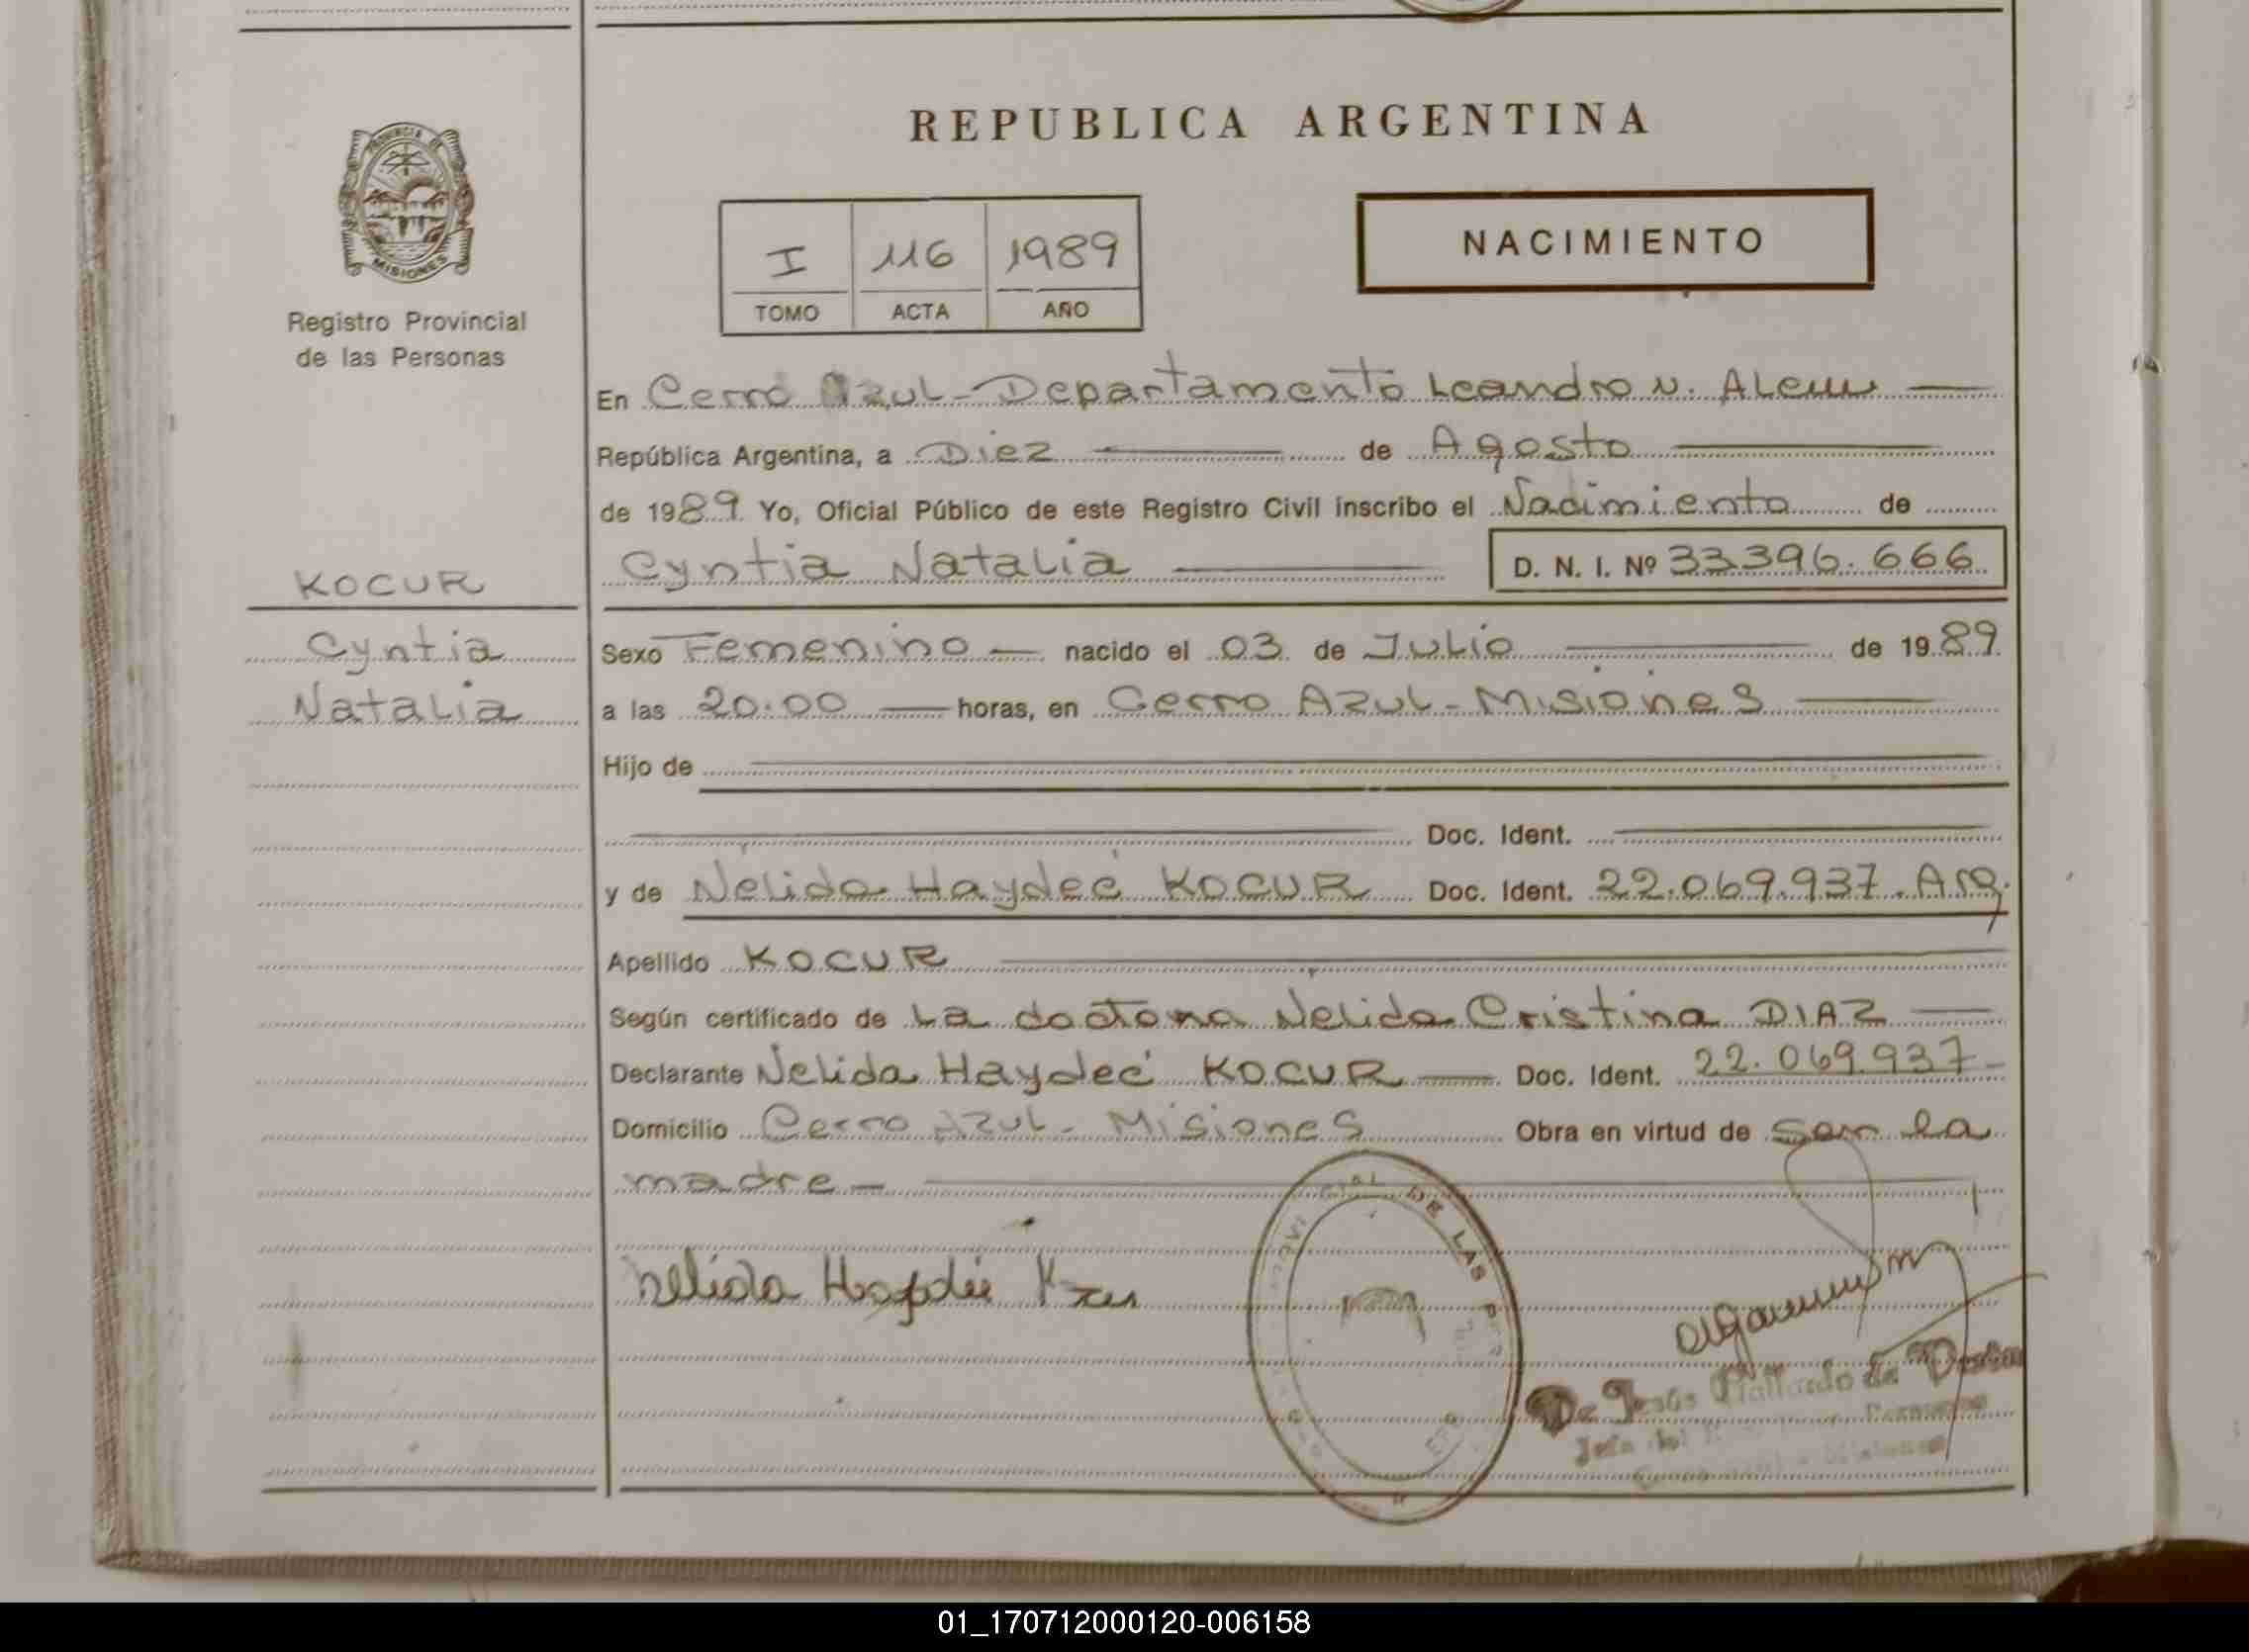 REPUBLICA ARGENTINA
PROVINCIA DE
MISIONES
Registro Provincial
de las Personas
I 116 1989
TOMO ACTA AÑO
NACIMIENTO
En Cerro Azul - Departamento Leandro N. Alem
República Argentina, a Diez de Agosto
de 1989 Yo, Oficial Público de este Registro Civil inscribo el Nacimiento de
Cyntia Natalia D. N. I. Nº 33396.666
KOCUR
Cyntia
Natalia
Sexo Femenino nacido el 03 de Julio de 1989
a las 20.00 horas, en Cerro Azul - Misiones
Hijo de
Doc. Ident.
y de Nelida Haydeé KOCUR Doc. Ident. 22.069.937. Arg.
Apellido KOCUR
Según certificado de La doctora Nelida Cristina DIAZ
Declarante Nelida Haydeé KOCUR Doc. Ident. 22.069.937
Domicilio Cerro Azul - Misiones Obra en virtud de Ser la
madre
Nelida Haydeé
DE LAS
De Jesús de
01_170712000120-006158